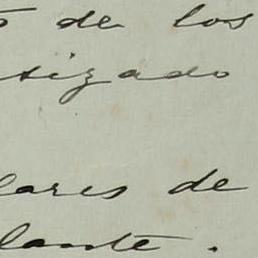 de los
tizado
lares de
lante.